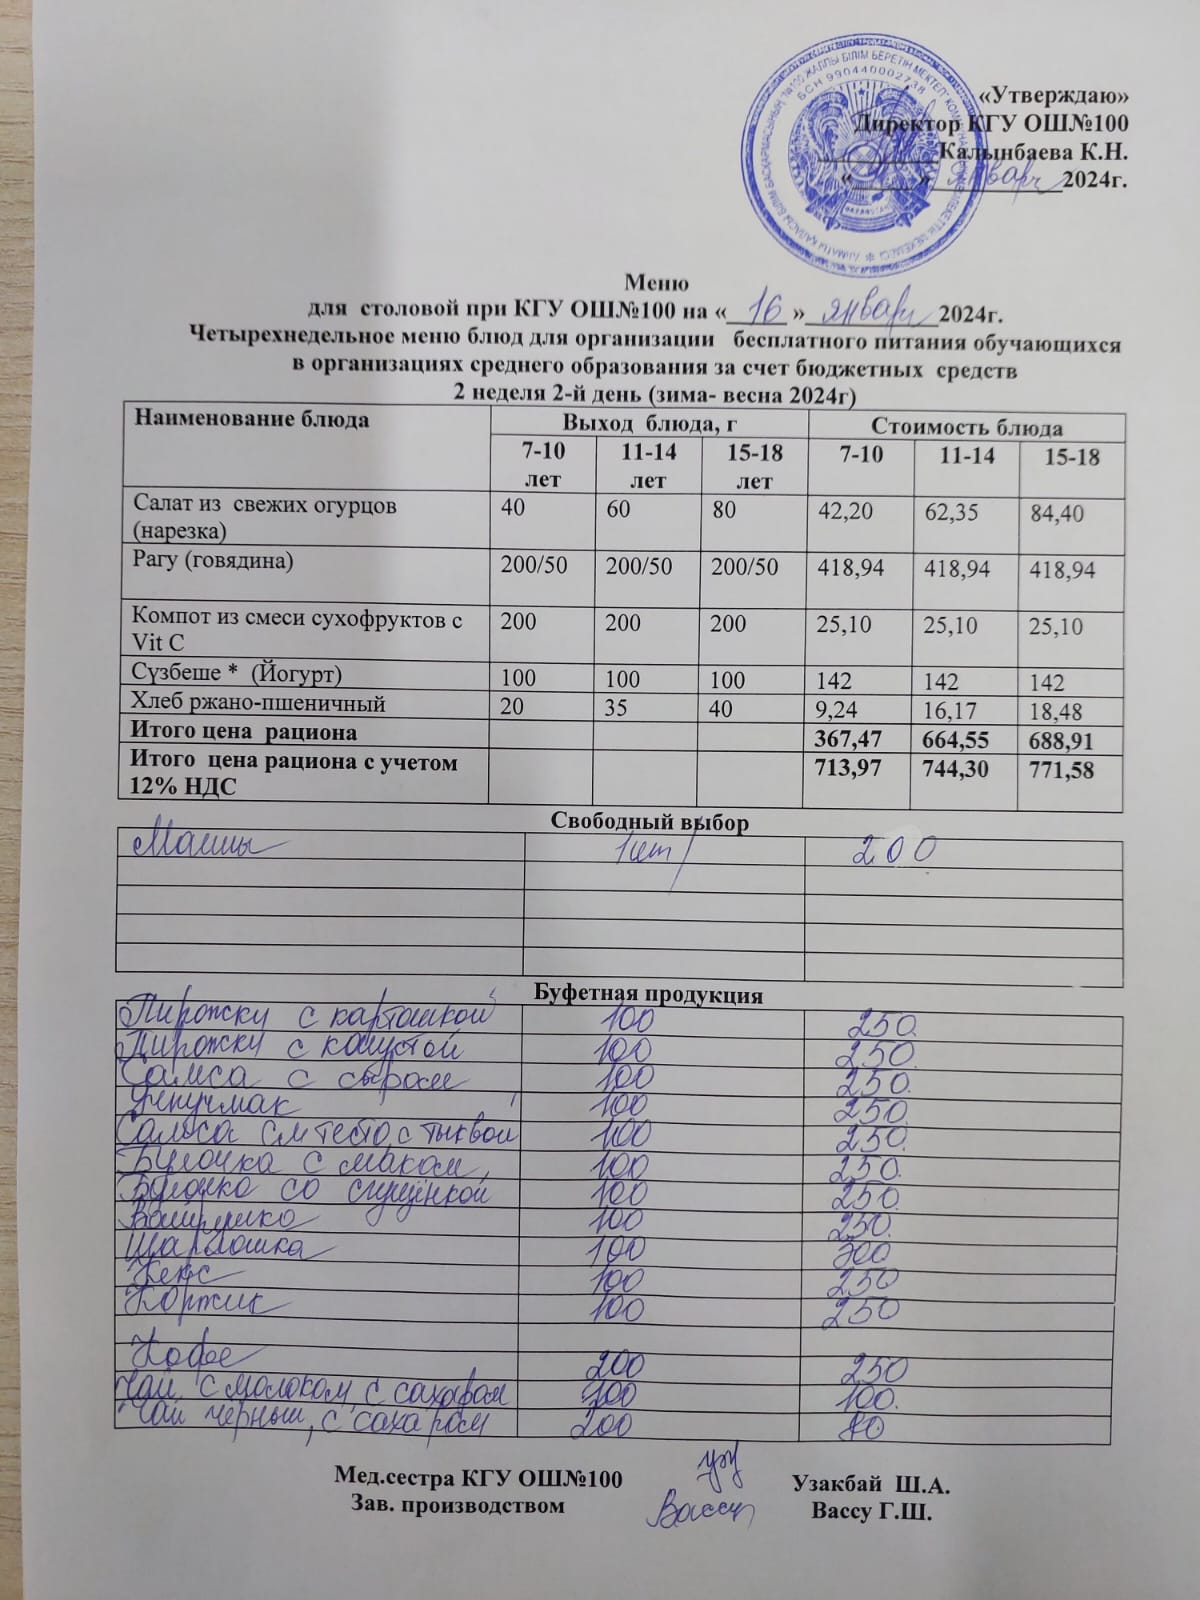 «Утверждаю»
Директор КГУ ОШ№100
__________Калынбаева К.Н.
«_____» январь 2024г.
БСН 990440002738
Меню
для столовой при КГУ ОШ№100 на « 16 » январь 2024г.
Четырехнедельное меню блюд для организации бесплатного питания обучающихся
в организациях среднего образования за счет бюджетных средств
2 неделя 2-й день (зима- весна 2024г)
Наименование блюда Выход блюда, г Стоимость блюда
7-10 лет 11-14 лет 15-18 лет 7-10 11-14 15-18
Салат из свежих огурцов (нарезка) 40 60 80 42,20 62,35 84,40
Рагу (говядина) 200/50 200/50 200/50 418,94 418,94 418,94
Компот из смеси сухофруктов с Vit C 200 200 200 25,10 25,10 25,10
Сүзбеше * (Йогурт) 100 100 100 142 142 142
Хлеб ржано-пшеничный 20 35 40 9,24 16,17 18,48
Итого цена рациона 367,47 664,55 688,91
Итого цена рациона с учетом 12% НДС 713,97 744,30 771,58
Свободный выбор
Манты 1шт 200
Буфетная продукция
Пирожки с картошкой 100 250
Пирожки с капустой 100 250
Самса с сыром 100 250
Учпучмак 100 250
Самса с тыквой 100 250
Булочка с маком 100 250
Булочка со сгущёнкой 100 250
100 250
100 300
Кекс 100 250
Коржик 100 250
Кофе 200 250
Чай с молоком, с сахаром 100
Чай черный, с сахаром 200 80
Мед.сестра КГУ ОШ№100 Узакбай Ш.А.
Зав. производством Вассу Вассу Г.Ш.